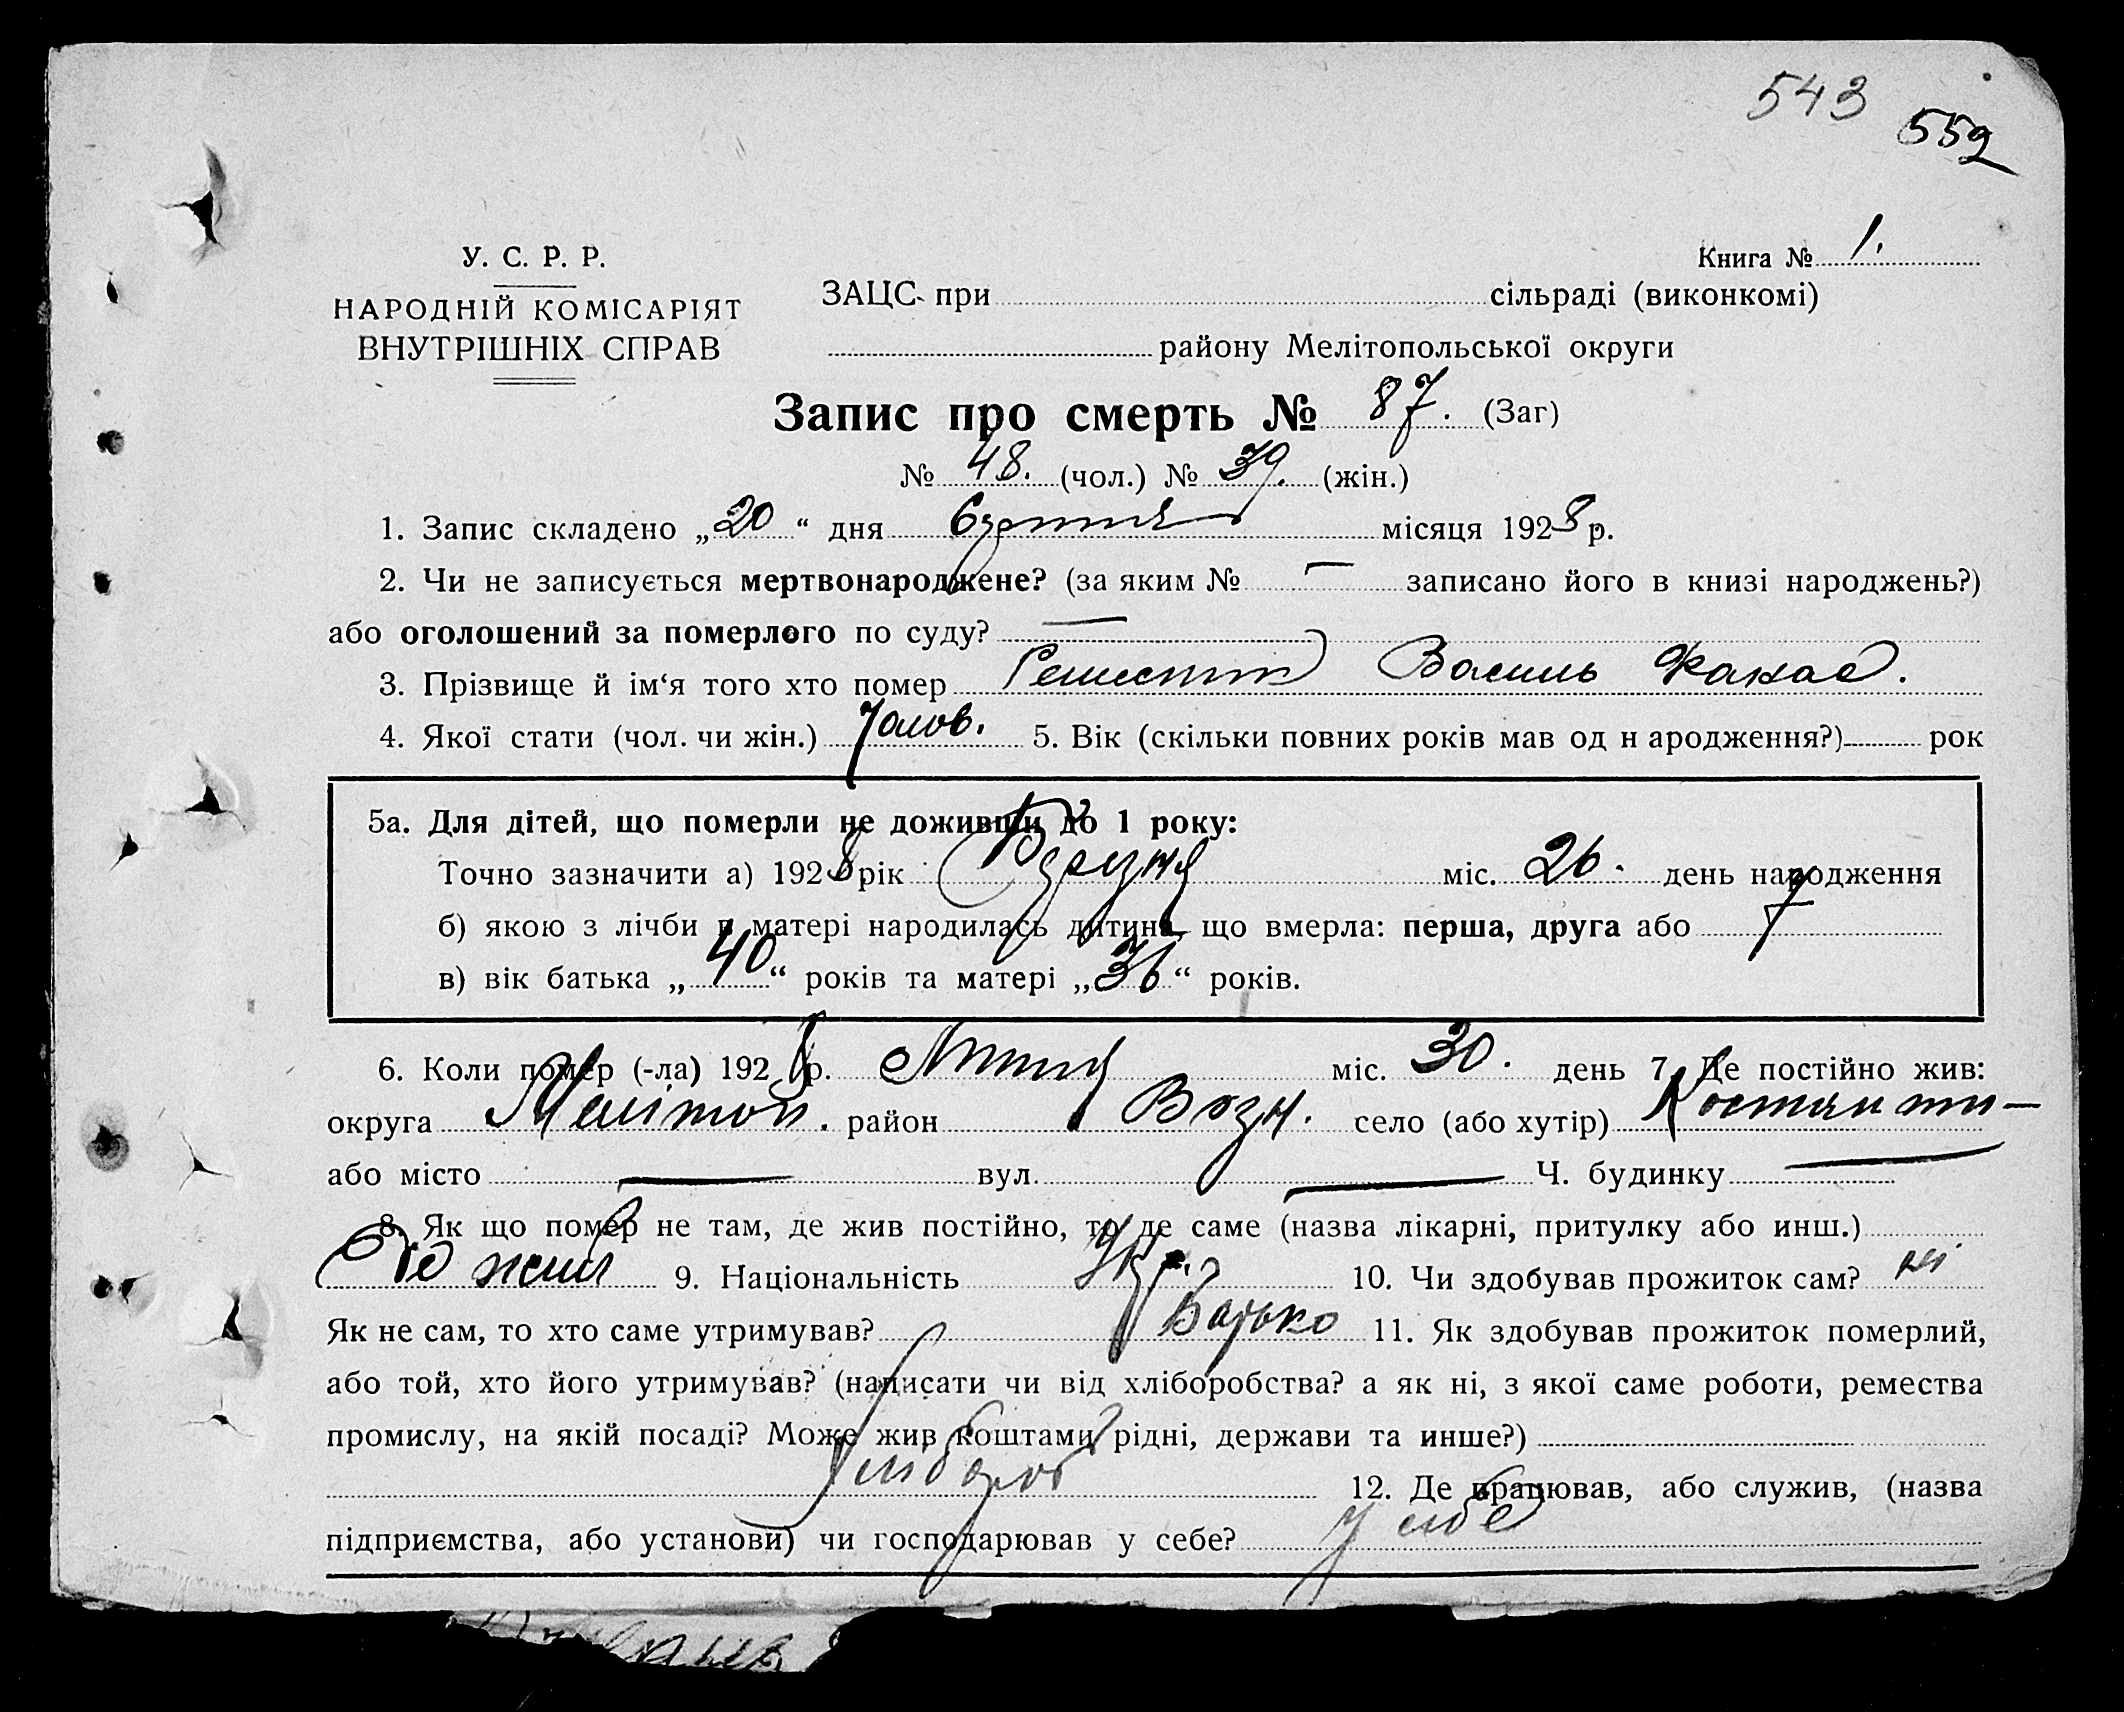 543 552
У. С. Р. Р.
Книга № 1.
НАРОДНІЙ КОМІСАРІЯТ
ВНУТРІШНІХ СПРАВ
ЗАЦС при сільраді (виконкомі)
району Мелітопольської округи
Запис про смерть № 87. (Заг)
№ 48. (чол.) № 39. (жін.)
1. Запис складено „20“ дня Серпня місяця 1928 р.
2. Чи не записується мертвонароджене? (за яким № — записано його в книзі народжень?)
або оголошений за померлого по суду? —
3. Прізвище й ім‘я того хто помер Василь
4. Якої стати (чол. чи жін.) Чолов. 5. Вік (скільки повних років мав од н ародження?) рок
5а. Для дітей, що померли не доживши до 1 року:
Точно зазначити а) 1928 рік міс. 26. день народження
б) якою з лічби в матері народилась дитина, що вмерла: перша, друга або 7
в) вік батька „40“ років та матері „36“ років.
6. Коли помер (-ла) 1928 р. Липня міс. 30. день 7. Де постійно жив:
округа Мелітоп. район Возн. село (або хутір) Костянти—
або місто — вул. — Ч. будинку —
8. Як що помер не там, де жив постійно, то де саме (назва лікарні, притулку або инш.)
Де жив 9. Національність Укр. 10. Чи здобував прожиток сам? ні
Як не сам, то хто саме утримував? Батько 11. Як здобував прожиток померлий,
або той, хто його утримував? (написати чи від хліборобства? а як ні, з якої саме роботи, ремества
промислу, на якій посаді? Може жив коштами рідні, держави та инше?)
Хлібороб 12. Де працював, або служив, (назва
підприємства, або установи) чи господарював у себе? у себе